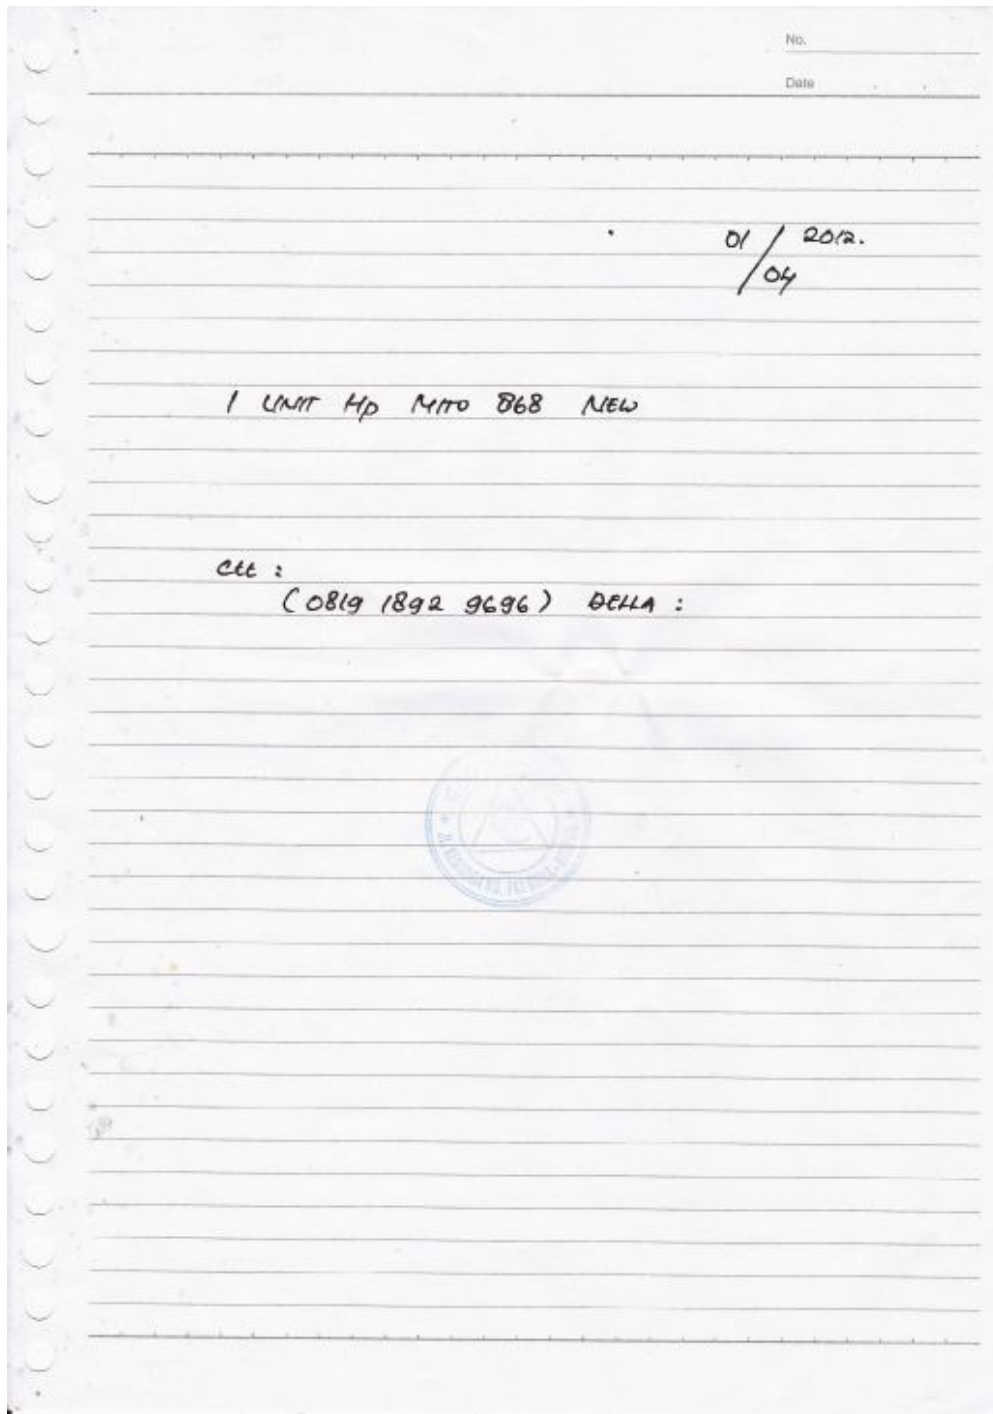 No.
Date
01 / 2012.
/ 04
1 UNIT Hp MITO 868 NEW
Ctt :
(0819 1892 9696) DELLA :